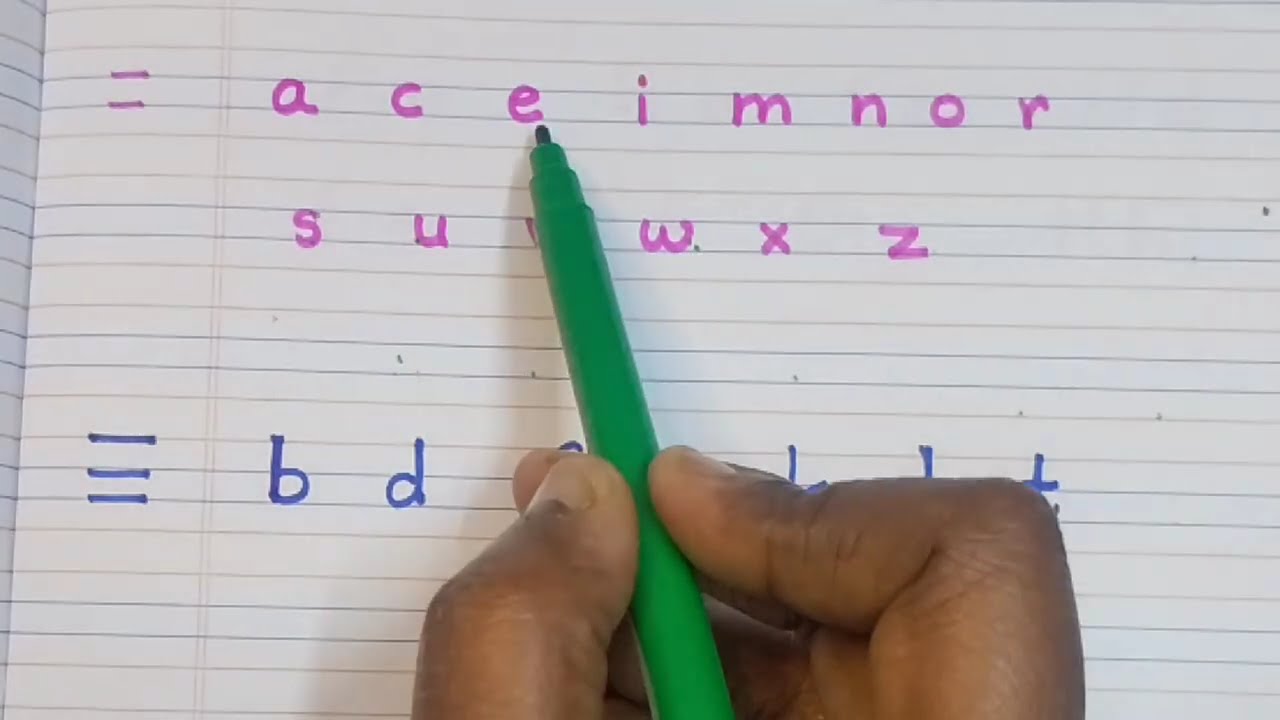 = a c e i m n o r
s u w x z
≡ b d t